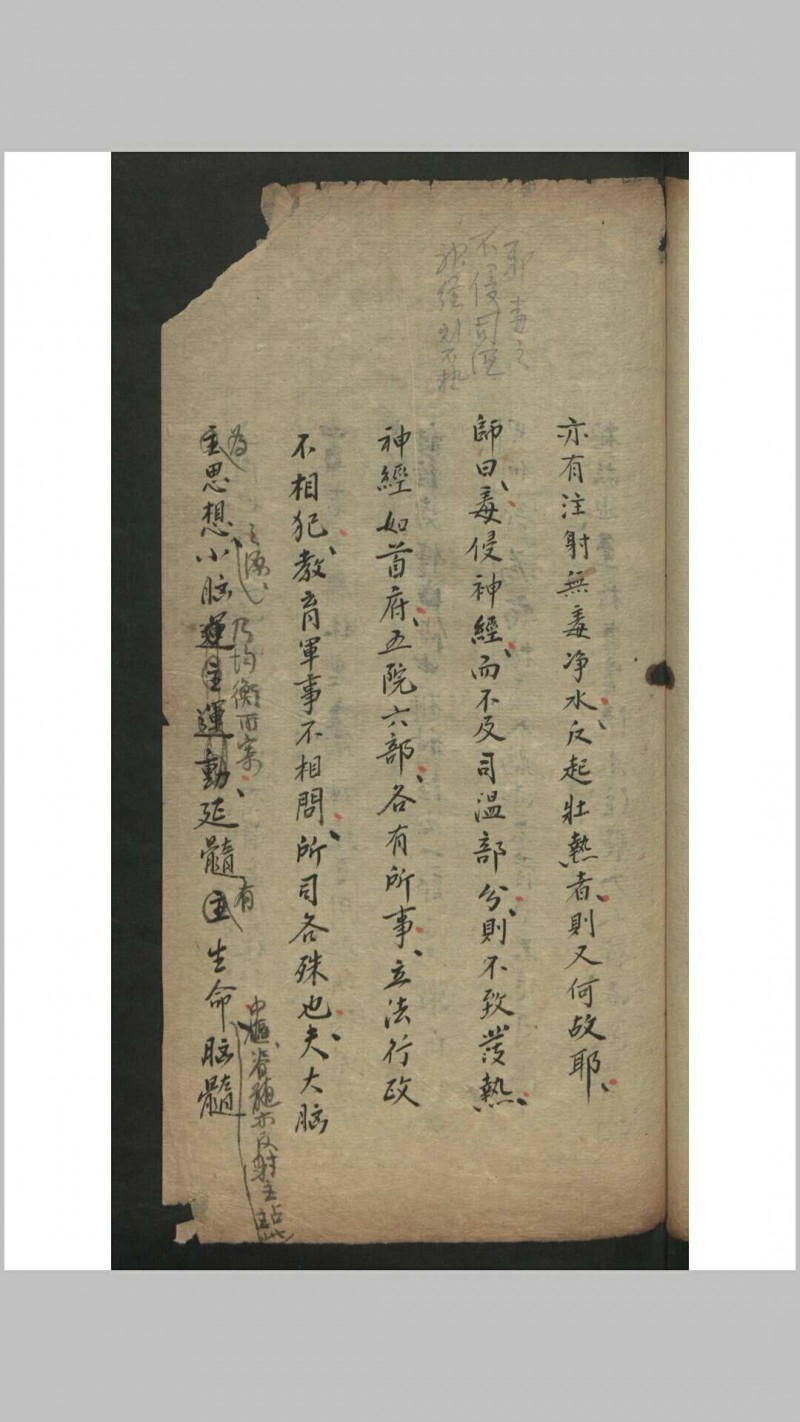 毒之
不侵司温
神經則不热
亦有注射無毒净水、反起壯熱者、則又何故耶、
師曰、毒侵神經、而不及司溫部分、則不致發熱、
神經如首府、五院六部、各有所事、立法行政
不相犯、教育軍事不相問、所司各殊也、夫大脑
主思想、小脑運主運動、延髓主生命、脑髓
為
之源、乃均衡
有
中樞、脊髓亦反射主